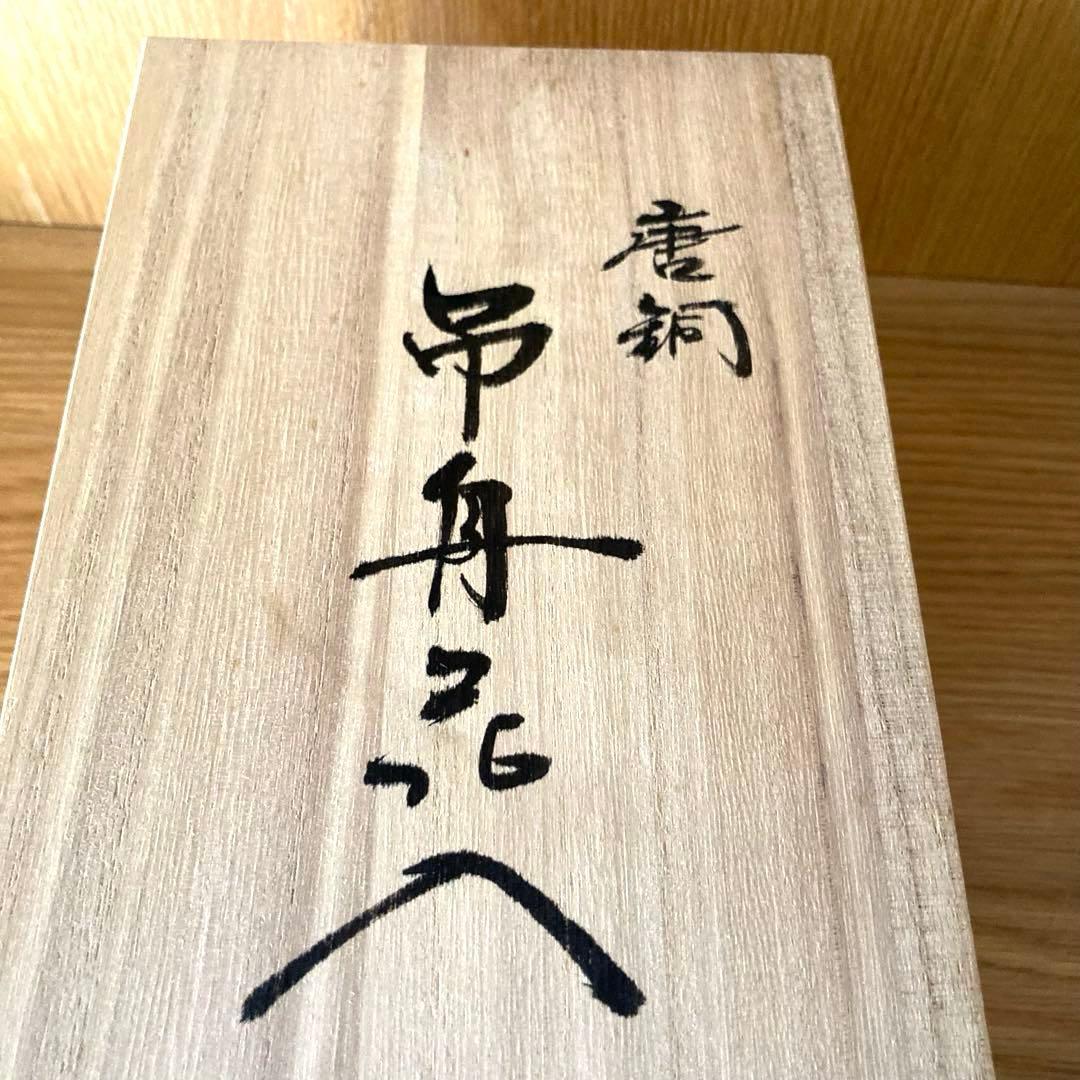 唐銅
吊舟花入